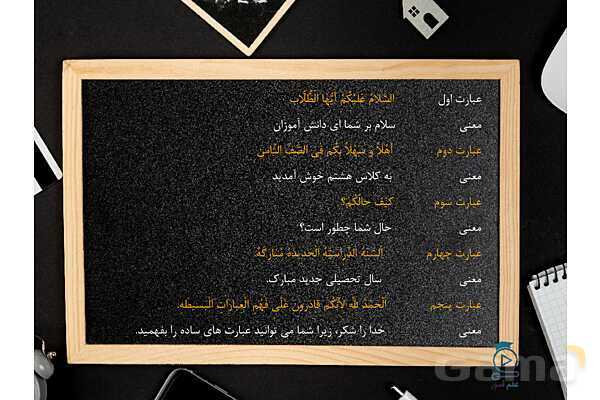 عبارت اول السَّلامُ عَلَيْكُمْ أَيُّهَا الطُّلّاب
معنی سلام بر شما ای دانش آموزان
عبارت دوم أَهْلاً و سَهلاً بِكُم في الصَّفِّ الثّامن
معنی به کلاس هشتم خوش آمدید
عبارت سوم كَيْفَ حالُكُمْ؟
معنی حال شما چطور است؟
عبارت چهارم اَلسَّنَةُ الدِّراسيَّةُ الْجَديدَةُ مُبارَكَةٌ.
معنی سال تحصیلی جدید مبارک.
عبارت پنجم اَلْحَمدُ لِلّهِ لأنَّكُم قادرون عَلَى فَهْمِ الْعِبارات الْبَسيطَه.
معنی خدا را شکر، زیرا شما می توانید عبارت های ساده را بفهمید.
علم آموز
Gama